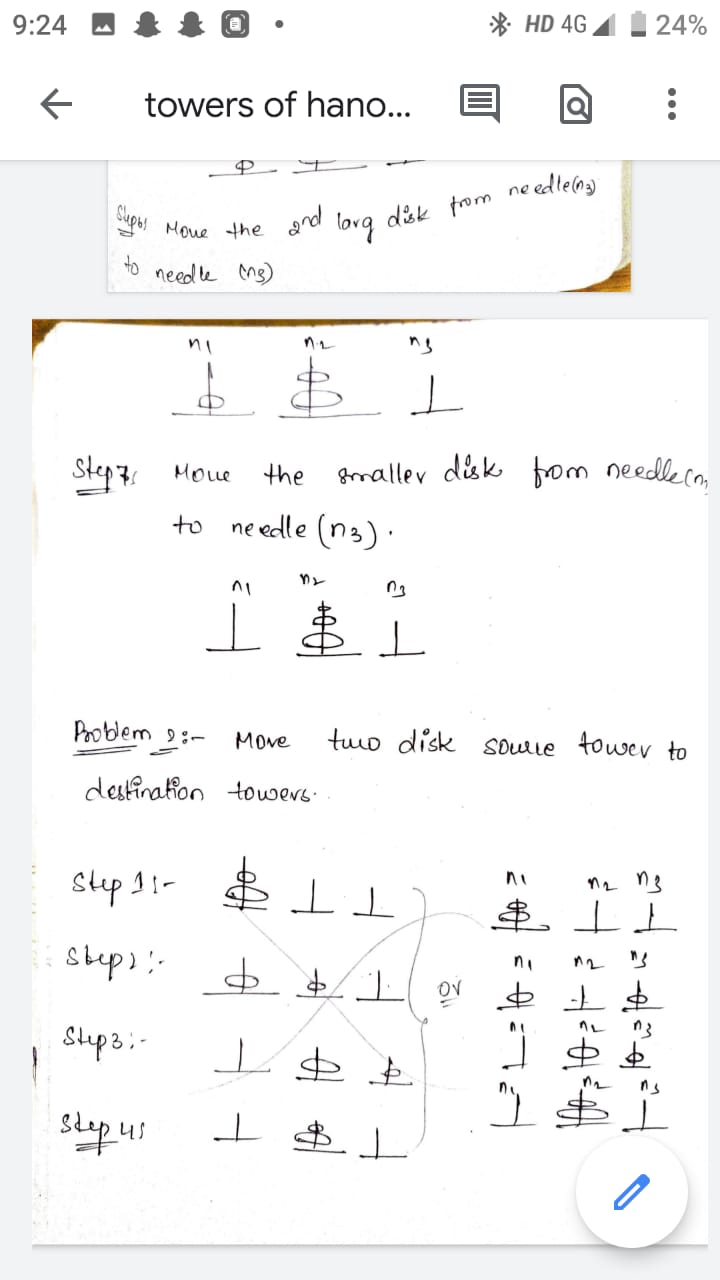 9:24
HD 4G 24%
towers of hano...
Step6: Move the 2nd larg disk from needle(n3)
to needle (n3)
n1 n2 n3
Step7: Move the smaller disk from needle(n
to needle (n3).
n1 n2 n3
Problem 2:- Move two disk sourie tower to
destination towers.
Step 1:-
n1 n2 n3
Step2:-
n1 n2 n3
or
Step3:-
n1 n2 n3
n1 n2 n3
Step 4: